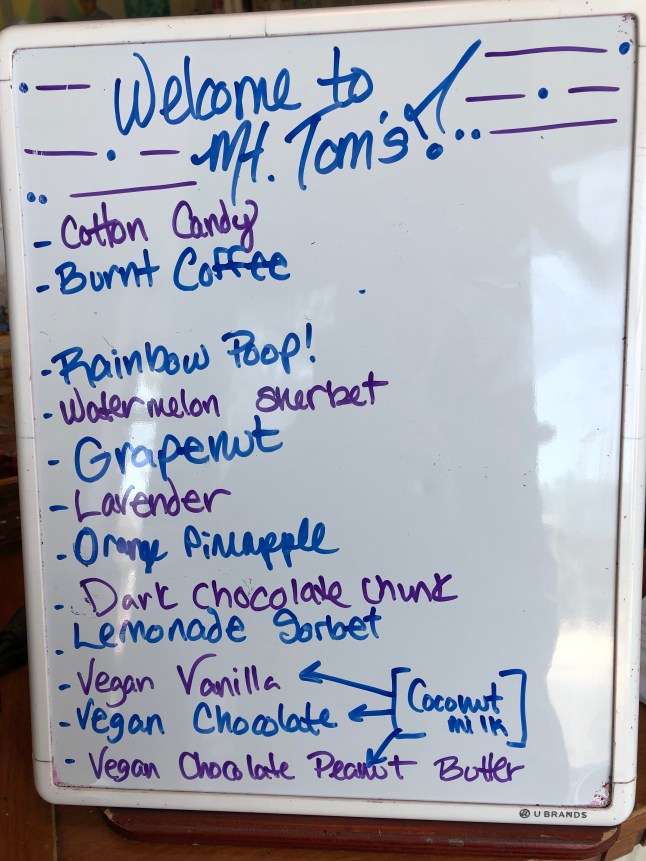 Welcome to
Mt. Tom's!
- Cotton Candy
- Burnt Coffee
- Rainbow Poop!
- Watermelon sherbet
- Grapenut
- Lavender
- Orange Pineapple
- Dark Chocolate Chunk
- Lemonade Sorbet
- Vegan Vanilla
- Vegan Chocolate
[Coconut
milk]
- Vegan Chocolate Peanut Butter
U BRANDS